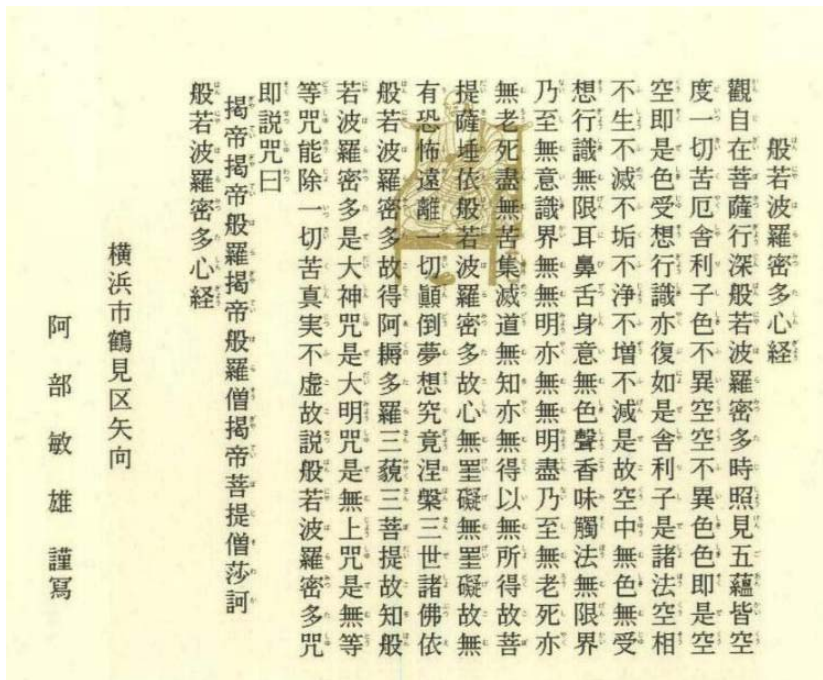 般若波羅密多心経
觀自在菩薩行深般若波羅密多時照見五蘊皆空
度一切苦厄舎利子色不異空空不異色色即是空
空即是色受想行識亦復如是舎利子是諸法空相
不生不滅不垢不浄不増不減是故空中無色無受
想行識無限耳鼻舌身意無色聲香味觸法無限界
乃至無意識界無無明亦無無明盡乃至無老死亦
無老死盡無苦集滅道無知亦無得以無所得故菩
提薩埵依般若波羅密多故心無罣礙無罣礙故無
有恐怖遠離一切顚倒夢想究竟涅槃三世諸佛依
般若波羅密多故得阿耨多羅三藐三菩提故知般
若波羅密多是大神咒是大明咒是無上咒是無等
等咒能除一切苦真実不虚故説般若波羅密多咒
即説咒曰
揭帝揭帝般羅揭帝般羅僧揭帝菩提僧莎訶
般若波羅密多心経
横浜市鶴見区矢向
阿部敏雄 謹寫